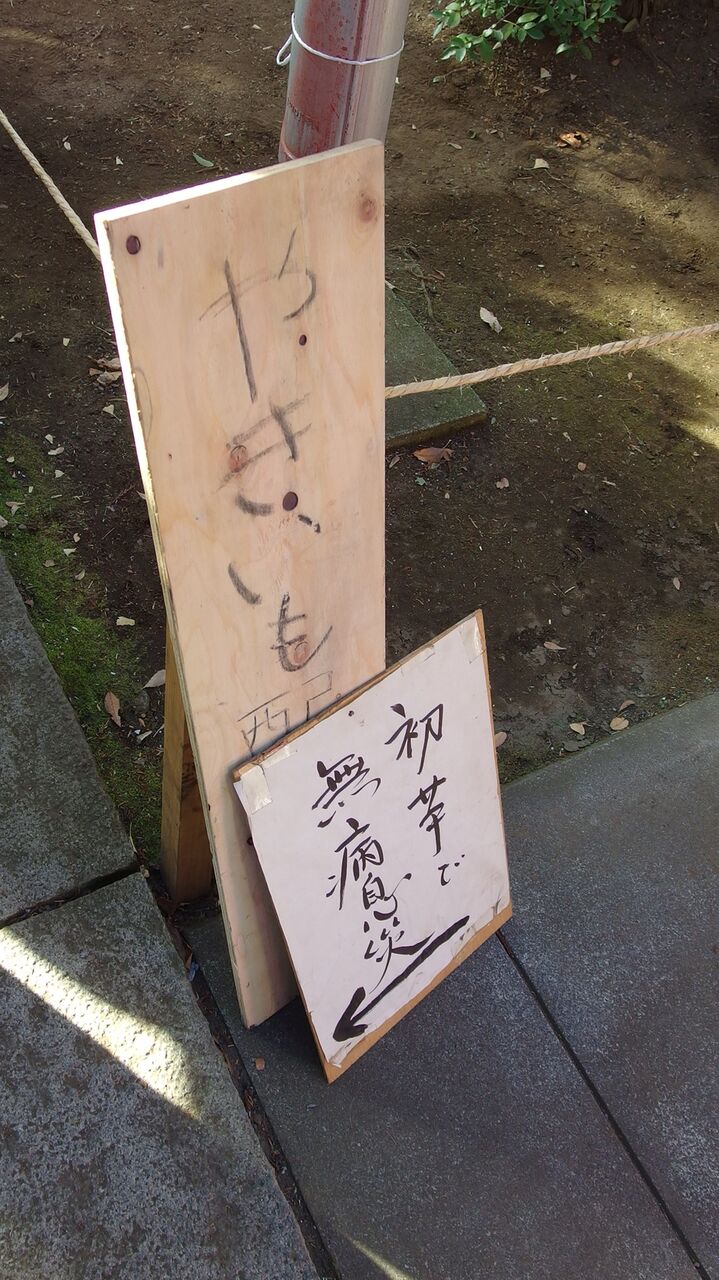 やきいも
初芋で
無病息災